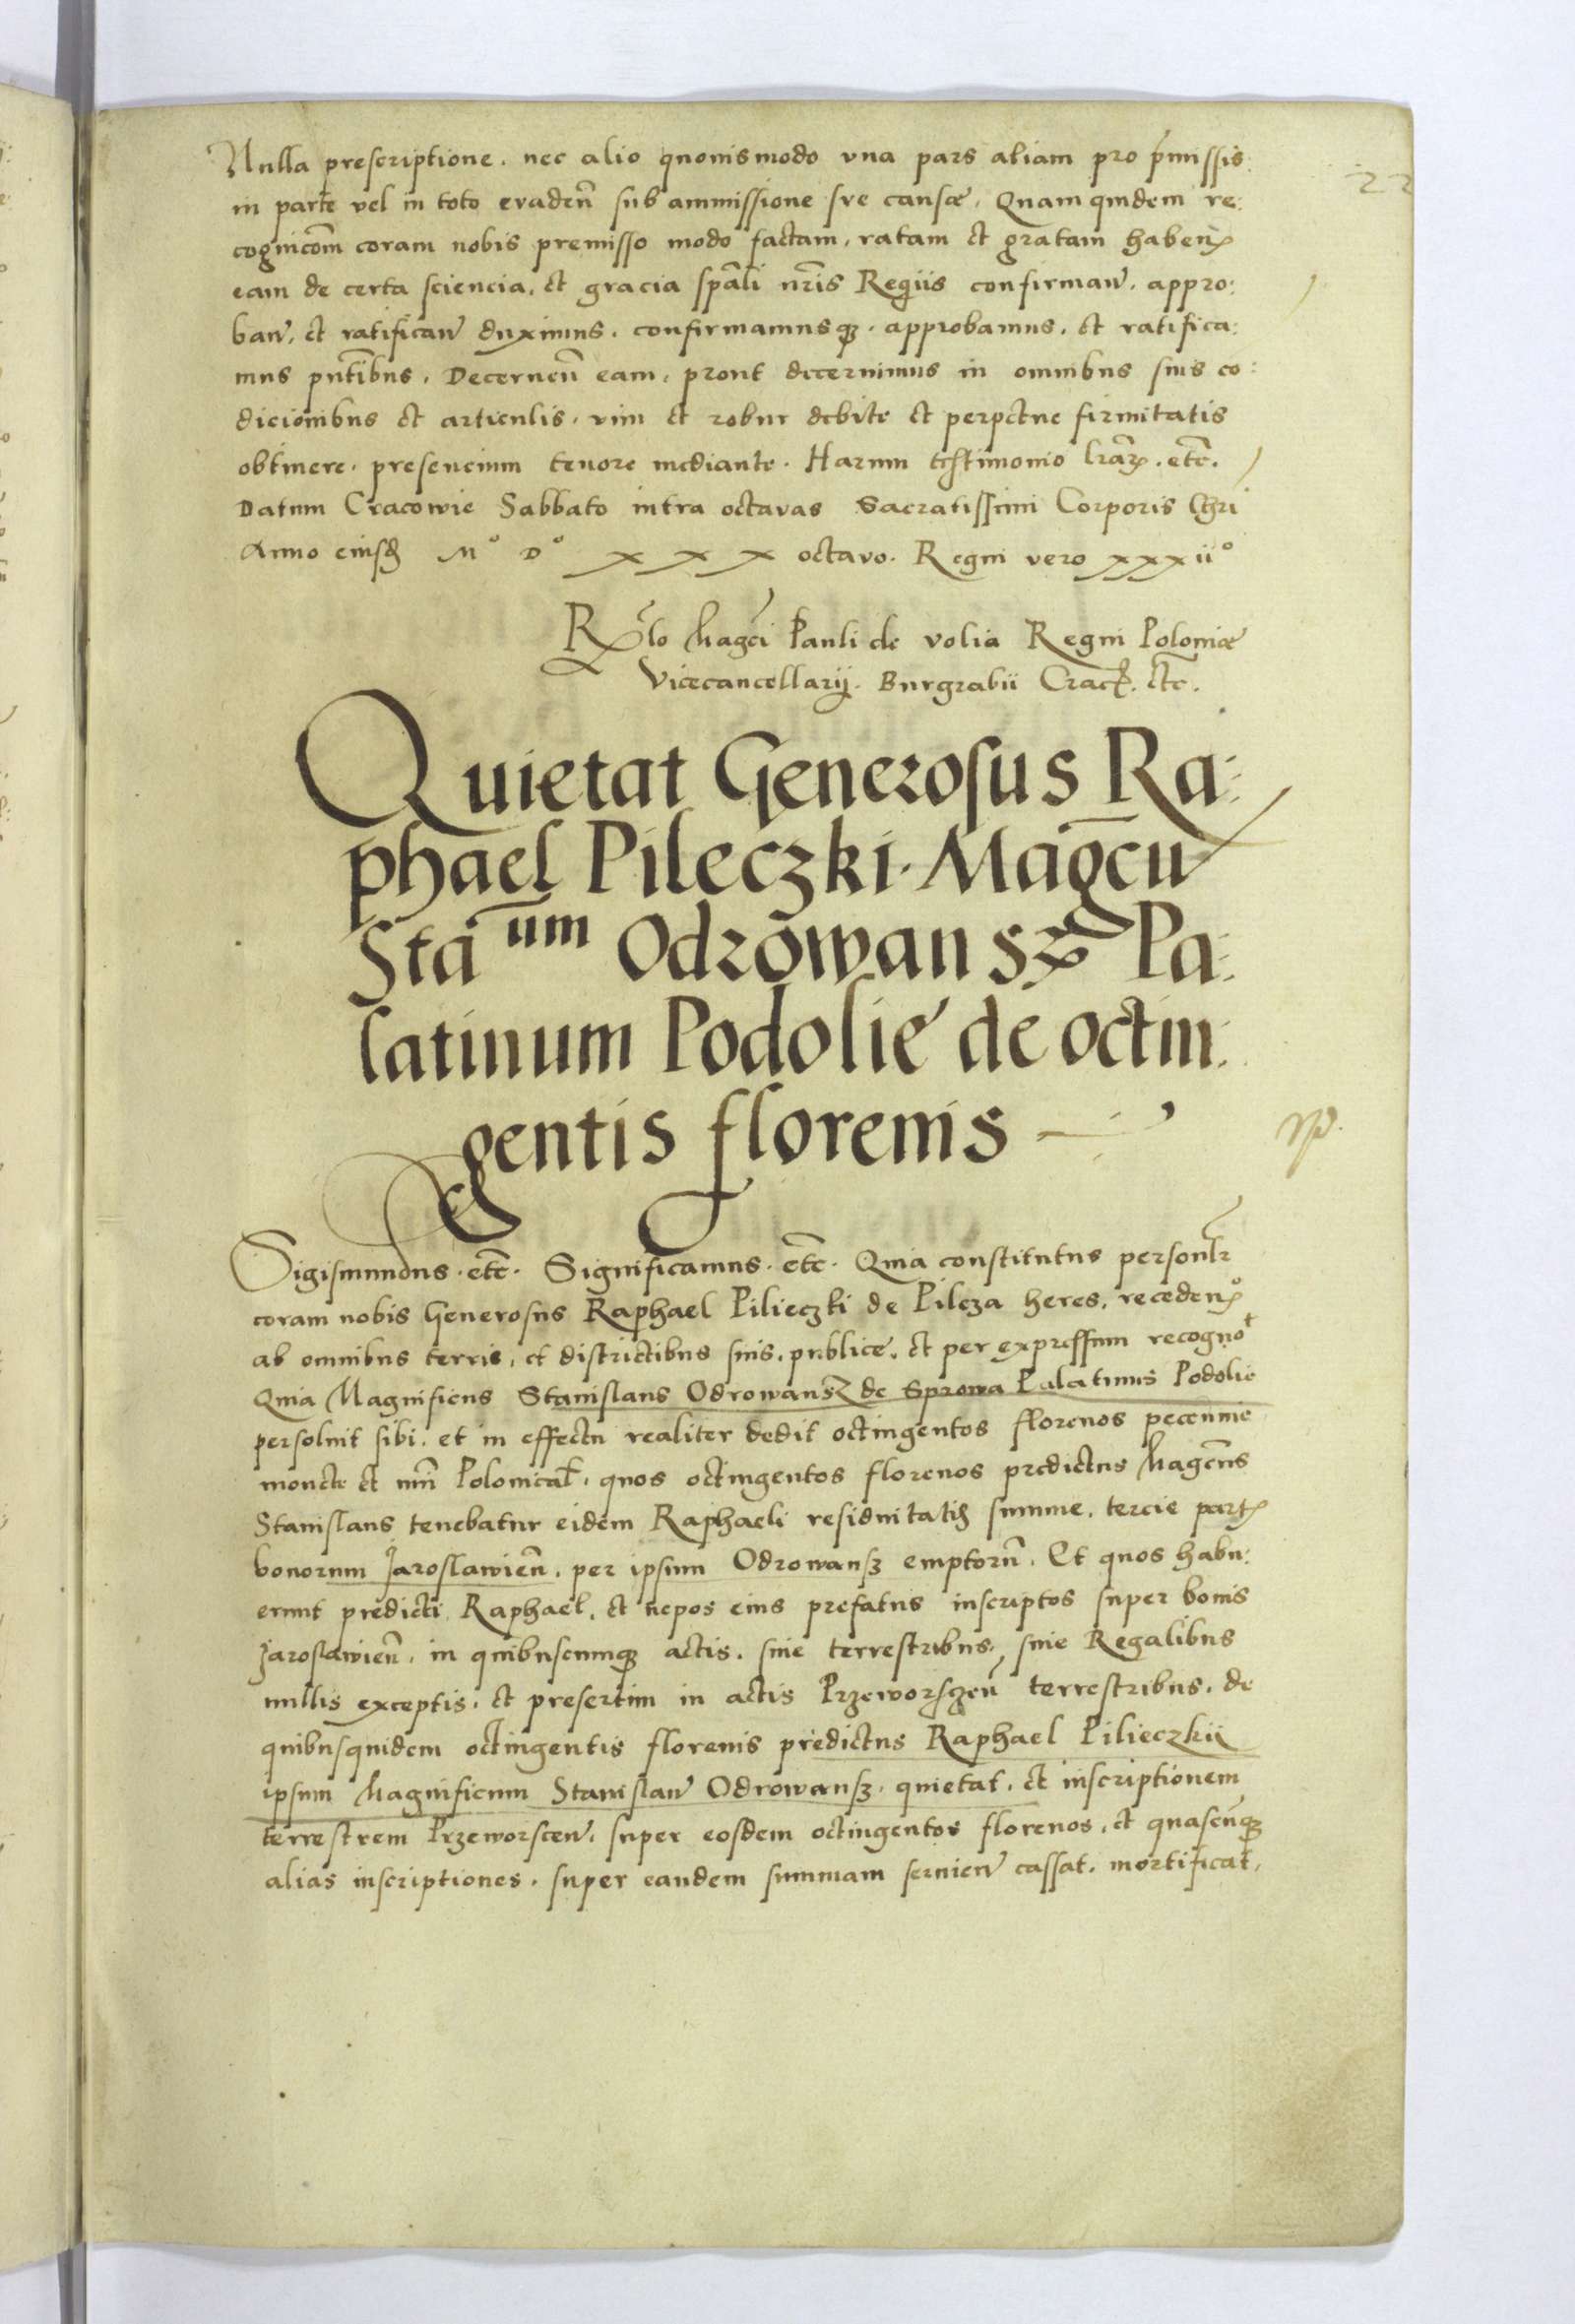 22
Nulla prescriptione. nec alio quouismodo vna pars aliam pro p̄missis:
in parte vel in toto evadeñ sub ammissione sve causæ, Quam quidem re:
cognicōm coram nobis premisso modo factam, ratam et gratam habeñ
eam de certa sciencia, et gracia sp̄ali nr̄is Regiis confirmañ. appro:
bañ, et ratificañ duximus. confirmamusqꝫ. approbamus, et ratifica:
mus pn̄tibus, Decerneñ eam, prout decernimus in omnibus suis co:
dicionibus et articulis, vim et robur debite et perpetue firmitatis
obtinere. presencium tenore mediante. Harum testimonio lr̄aꝝ. etc̄.
Datum Cracowie Sabbato intra octavas Sacratissimi Corporis Chri
Anno eiusd̄ Mº Dº xxx octavo. Regni vero xxxiiº
Rº̄lo Mag̃ci Pauli de volia Regni Poloniæ
Vicecancellarij. Burgrabii Crac̄. etc̄.
Quietat Generosus Ra:
phael Pileczki. Mag̃cu
Sta um Odrowansz Pa:
latinum Podolie de octin:
gentis florenis
Sigismundus. etc̄. Significamus. etc̄. Quia constitutus personlr̄
coram nobis Generosus Raphael Pilieczki de Pilcza heres, recedenº
ab omnibus terris, et districtibus suis, publice, et per expressum recogno​t
Quia Magnificus Stanislaus Odrowansz de Sprowa Palatinus Podolie
persoluit sibi. et in effectu realiter dedit octingentos florenos pecunie
monete et nūi Polonicał. quos octingentos florenos predictus Magc̃us
Stanislaus tenebatur eidem Raphaeli residuitatis summe, tercie partꝭ
bonorum Jaroslawień. per ipsum Odrowansz emptorū. Et quos habu:
erunt predicti Raphael, et nepos eius prefatus inscriptos super bonis
Jaroslawień. in quibuscunqꝫ actis. siue terrestribus, siue Regalibus
nullis exceptis. et presertim in actis Przeworsceñ terrestribus. de
quibusquidem octingentis florenis predictus Raphael Pilieczkij
ipsum Magnificum Stanislaū Odrowansz. quietat. et inscriptionem
terrestrem Przeworsceñ. super eosdem octingentos florenos, et quascūqꝫ
alias inscriptiones. super eandem summam seruieñ cassat. mortificat,